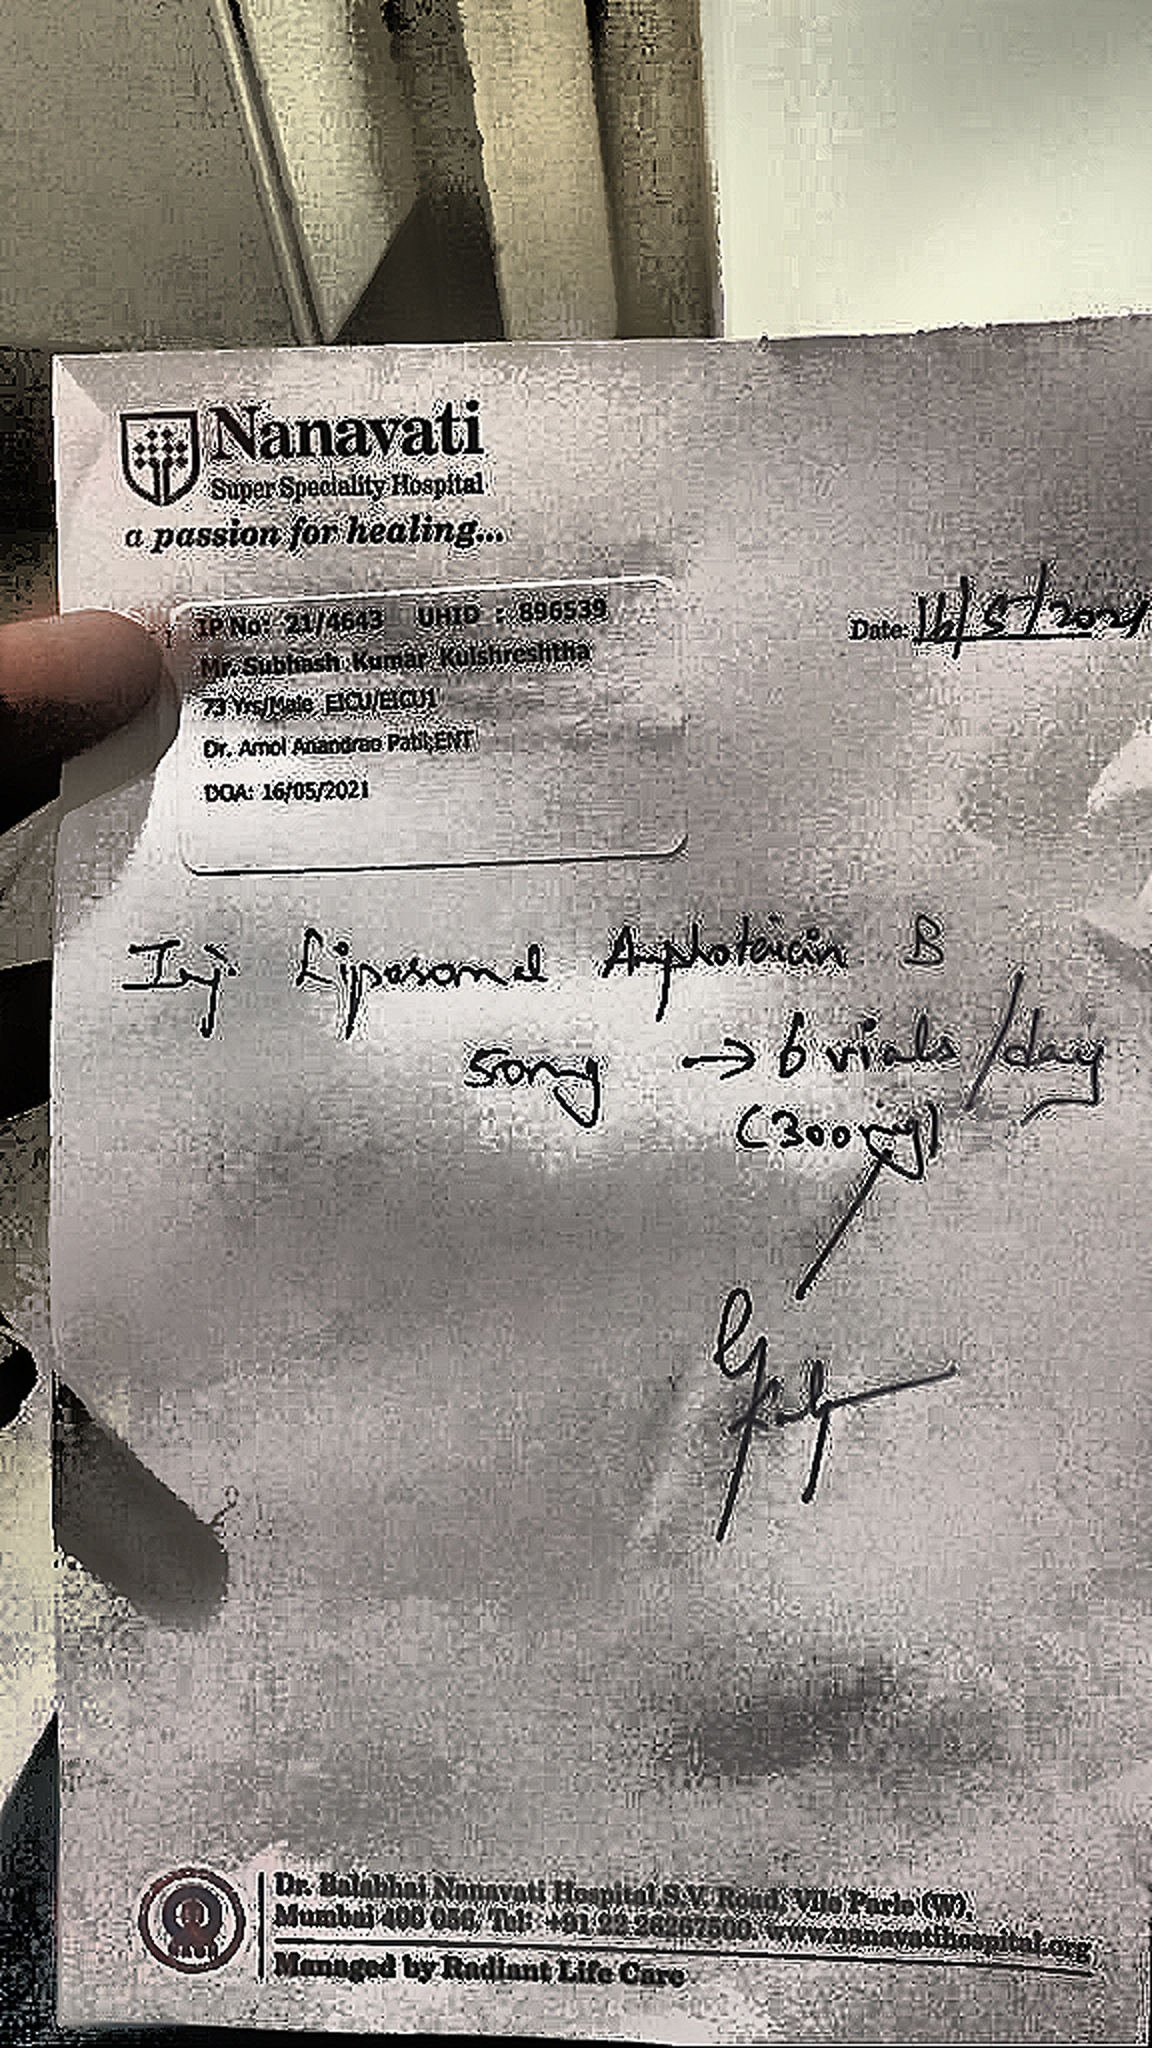 Nanavati
Super Speciality Hospital
a passion for healing...
IP No: 21/4643 UHID : 896539
Mr. Subhash Kumar Kulshreshtha
73 Yrs/Male EICU/EICU1
Dr. Amol Anandrao Patil,ENT
DOA: 16/05/2021
Date: 16/5/2021
Inj. Liposomal Amphotericin B
50mg → 6 vials /day
(300mg)
Dr. Balabhai Nanavati Hospital S.V. Road, Vile Parle (W),
Mumbai 400 056, Tel: +91.22.26267500. www.nanavatihospital.org
Managed by Radiant Life Care